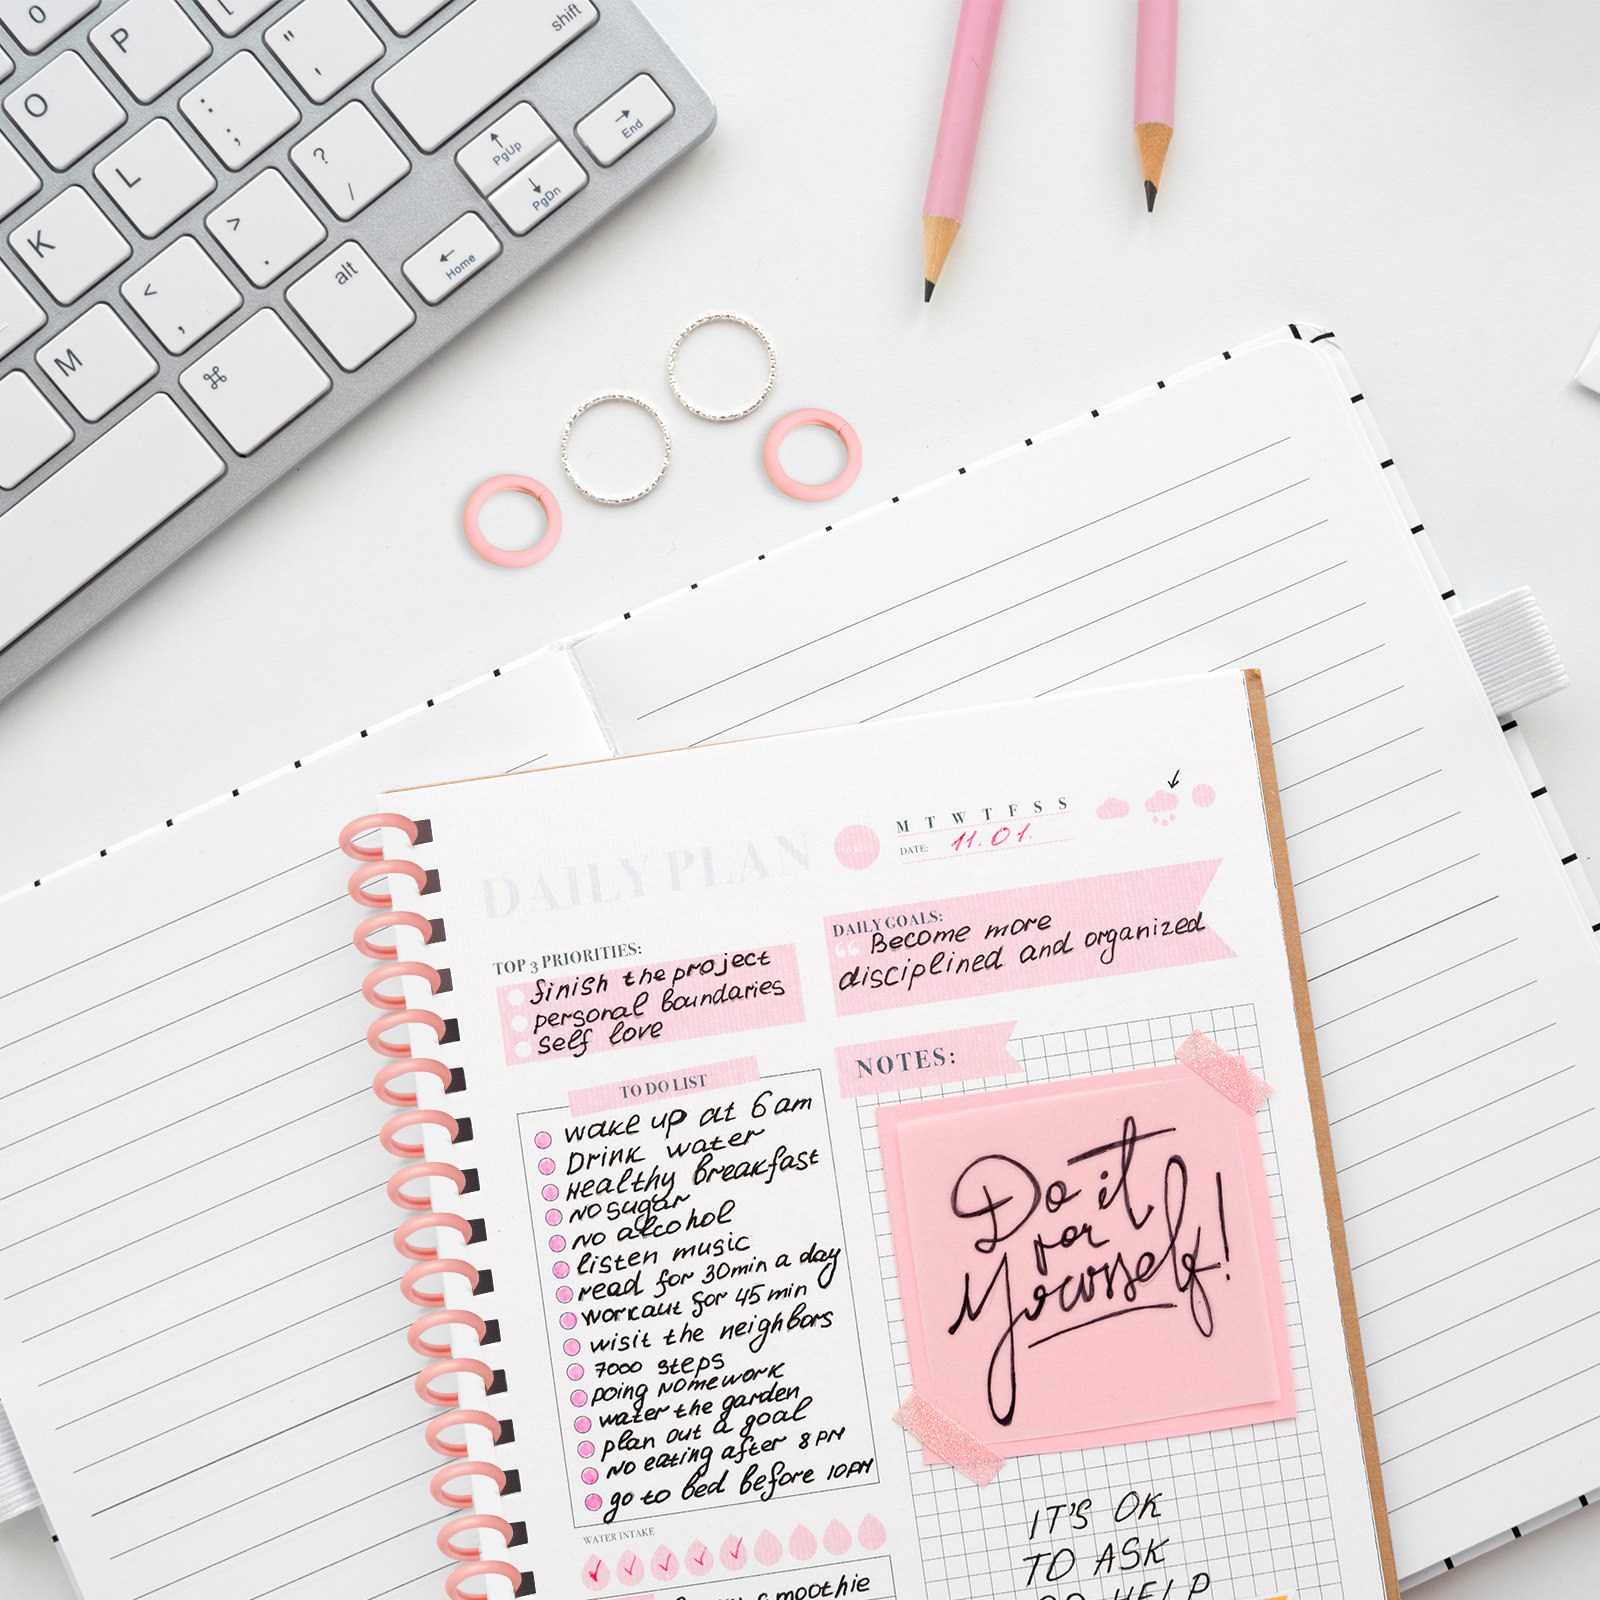 shift
P
"
'
O
:
;
?
/
L
PgUp
PgDn
End
K
>
.
<
,
alt
Home
M
⌘
DAILY PLAN
M T W T F S S
DATE: 11.01.
TOP 3 PRIORITIES:
finish the project
personal boundaries
self love
DAILY GOALS:
“ Become more
disciplined and organized
TO DO LIST
wake up at 6 am
Drink water
Healthy breakfast
NO sugar
NO alcohol
listen music
read for 30min a day
workaut for 45 min
wisit the neighbors
7000 steps
Doing Homework
water the garden
plan out a goal
NO eating after 8 PM
go to bed before 10PM
WATER INTAKE
smoothie
NOTES:
Do it
for
Yourself!
IT'S OK
TO ASK
HELP